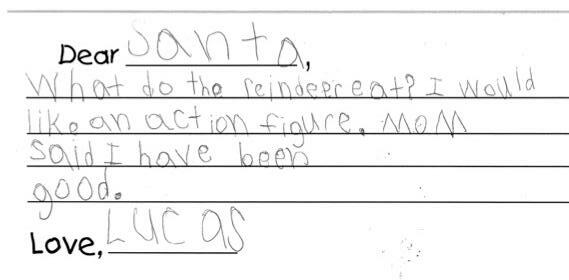 Dear Santa,
What do the reindeer eat? I would
like an action figure. MOM
said I have been
good.
Love, Lucas